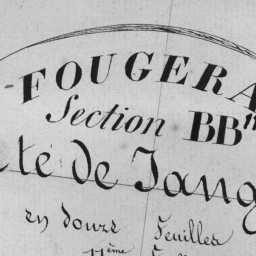 FOUGERA
Section BBⁿ
té de Jang
en douze Feuilles
11ème